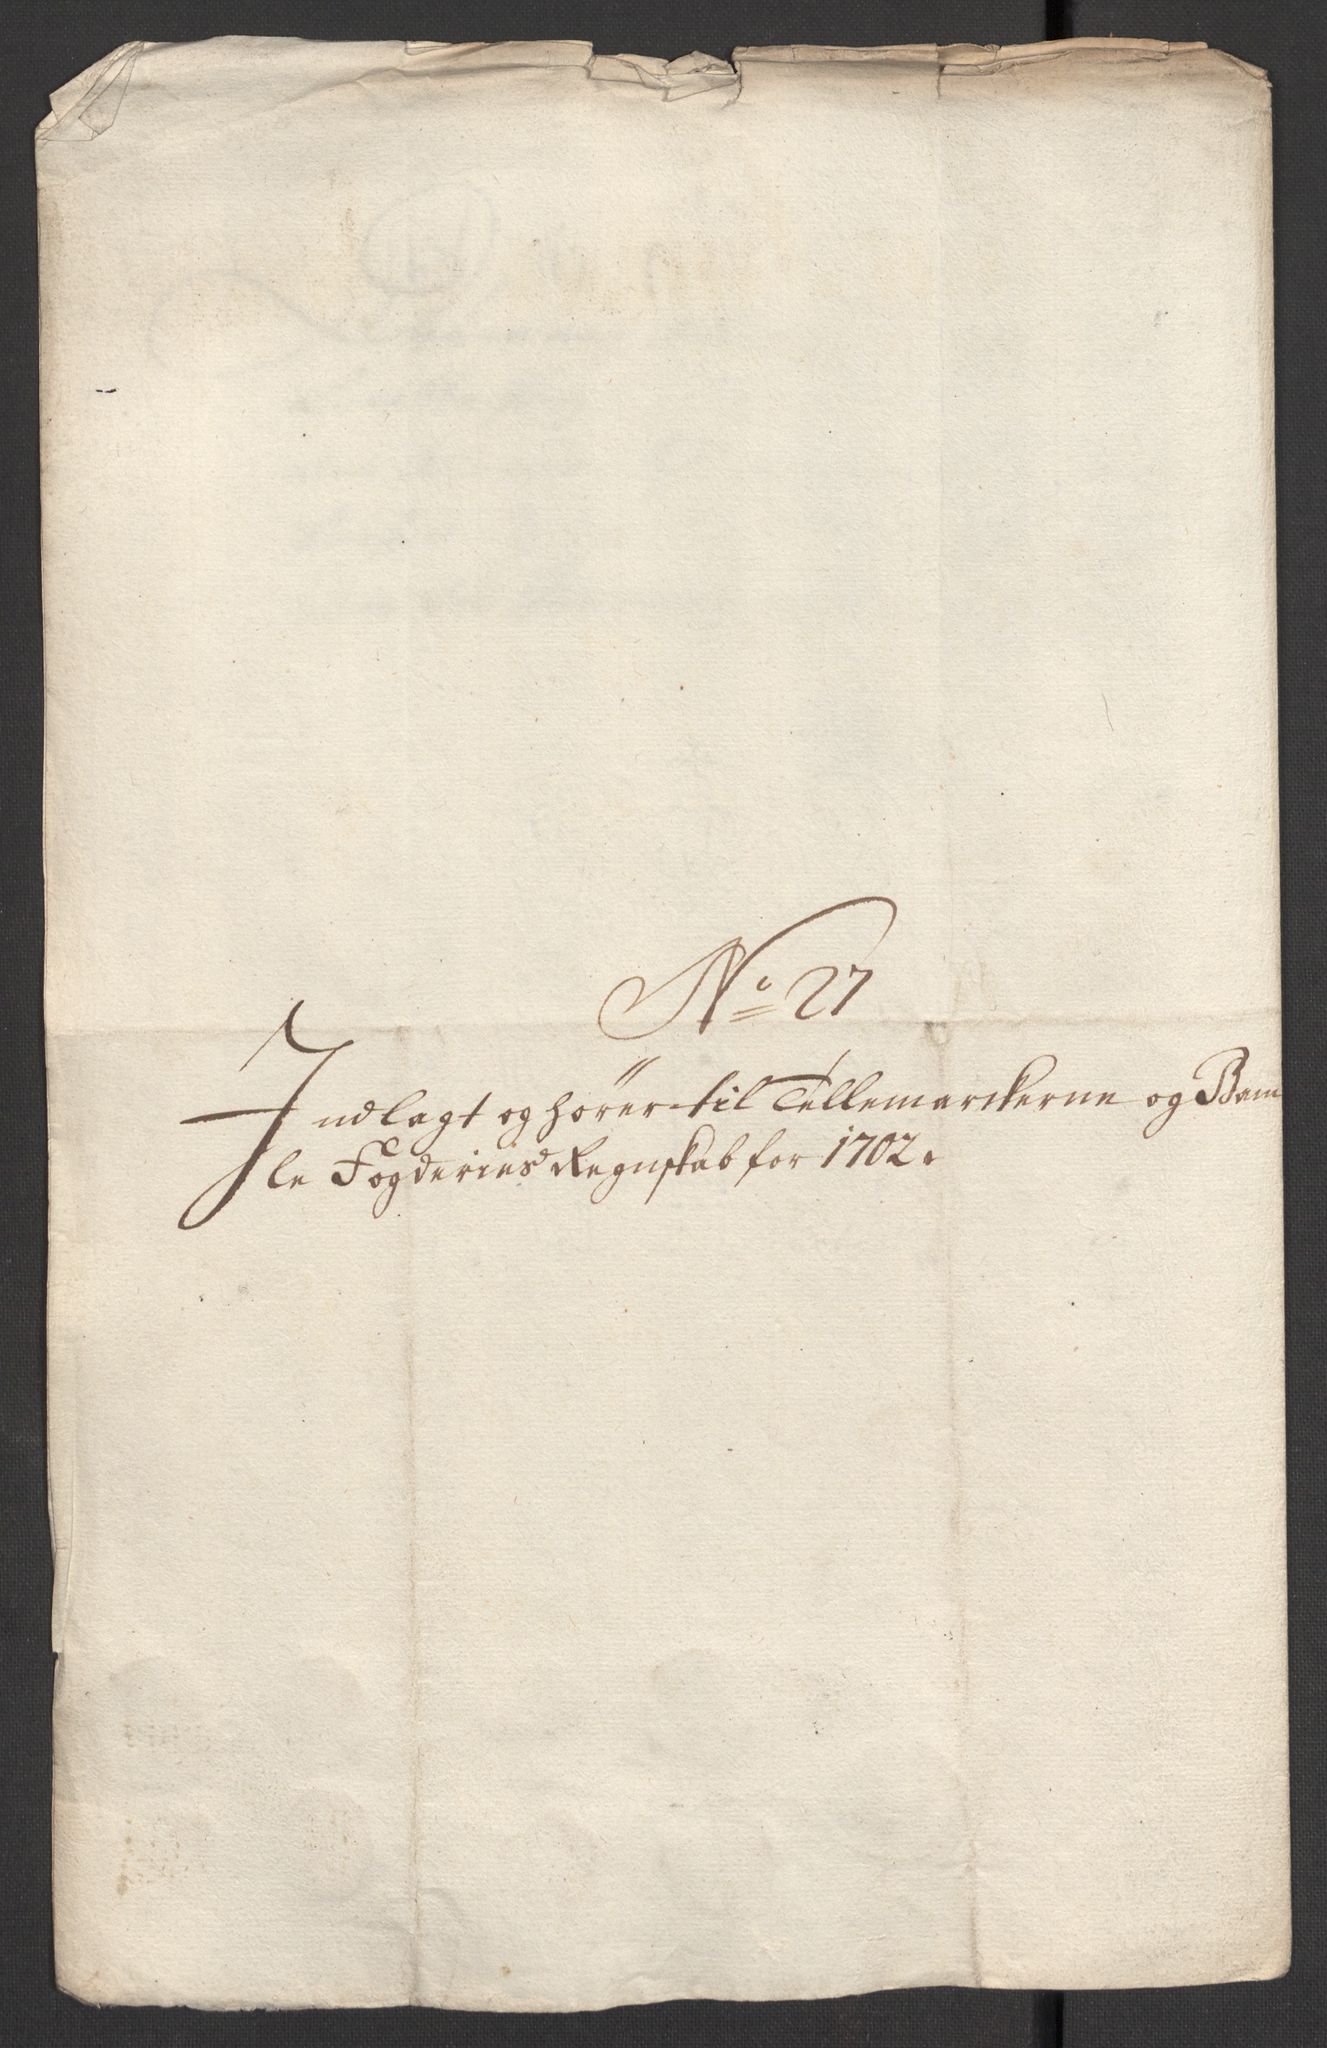 No 27
Indlagt og hörer til Tellemarckerne og Bam
le Fogderies Regnskab for 1702.